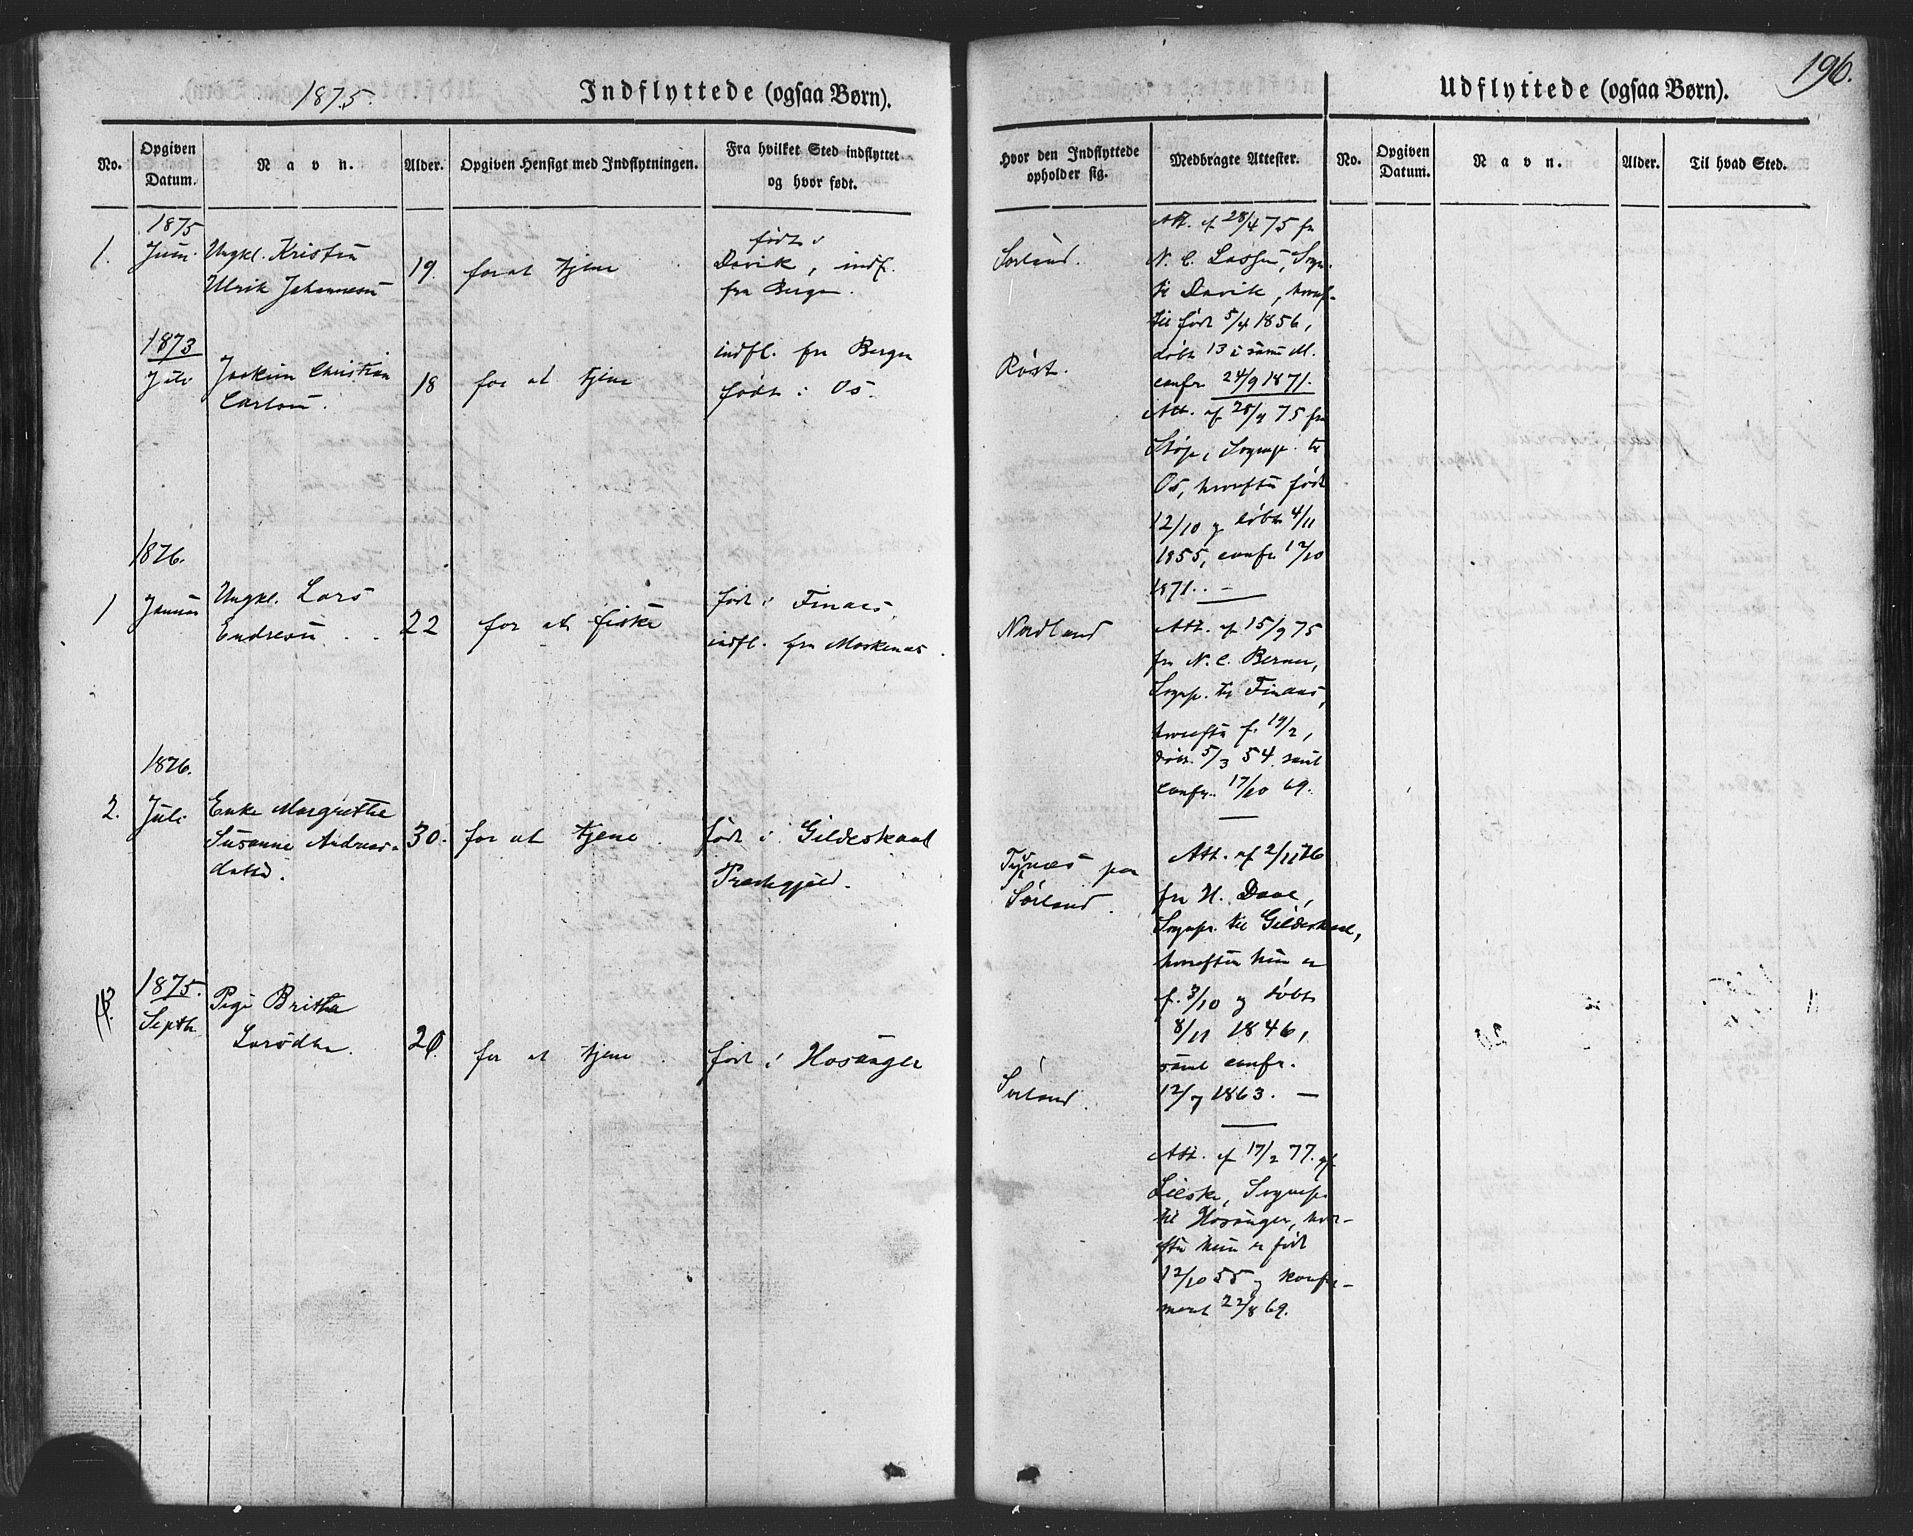 196.
1875.
Indflyttede (ogsaa Børn).
No.
Opgiven Datum.
Navn.
Alder.
Opgiven Hensigt med Indflytningen.
Fra hvilket Sted indflyttet
og hvor født.
1875
1.
Juni
Ungkl. Kristen
Ulrik Johannesen
19.
for at tjene
født i
Davik, indf.
fra Bergen.
1873
Juli
Joakim Christian
Carlsen.
18
for at tjene
indfl. fra Bergen
født i Os.
1876.
1
Januar
Ungkl. Lars
Endresen
22
for at fiske
født i Finaas
indfl. fra Moskenæs.
1876.
2.
Juli
Enke Margrethe
Susanne Andreas-
datter.
30.
for at tjene
født i Gildeskaal
Præstegjeld.
1875.
Septbr
Pige Britha
Larsdtr.
20
for at tjene
født i Hosanger
Hvor den Indflyttede
opholder sig.
Medbragte Attester.
Sørland.
Att. af 28/4 75 fra
N. C. Lassen, Sogn.
til Davik, hvoref-
ter født 5/4 1856,
døbt 13 i samme M.
confr 24/9 1871.
Røst.
Att. af 28/4 75 fra
Sognep. til
Os, hvorefter født
12/10 og døbt 4/11
1855, confr 12/10
1871. -
Nordland
Att. af 15/9 75
fra N. C. Berner,
Sognep. til Finaas,
hvorefter f. 19/2,
døbt 5/3 54 samt
confr. 17/10 69.
Tyvnæs paa
Sørland.
Att. af 2/11 76
fra H. Daae,
Sognepr. til Gildeskaal,
hvorefter hun er
f. 3/10 og døbt
8/11 1846,
samt confr.
12/7 1863. -
Sørland.
Att. af 17/2 77. af
Sognep.
til Hosanger, hvor-
efter hun er født
12/10 55 og konfir-
meret 22/8 69.
Udflyttede (ogsaa Børn).
No.
Opgiven Datum.
Navn.
Alder.
Til hvad Sted.